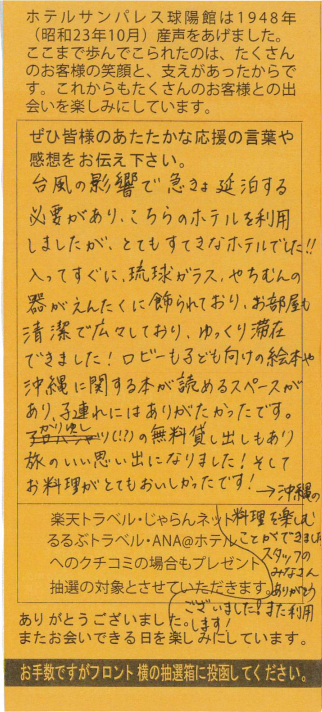 ホテルサンパレス球陽館は1948年
（昭和23年10月）産声をあげました。
ここまで歩んでこられたのは、たくさん
のお客様の笑顔と、支えがあったからで
す。これからもたくさんのお客様との出
会いを楽しみにしています。
ぜひ皆様のあたたかな応援の言葉や
感想をお伝え下さい。
台風の影響で急きょ延泊する
必要があり、こちらのホテルを利用
しましたが、とてもすてきなホテルでした!!
入ってすぐに、琉球ガラス、やちむんの
器がえんたくに飾られており、お部屋も
清潔で広々しており、ゆっくり滞在
できました！ロビーも子ども向けの絵本や
沖縄に関する本が読めるスペースが
あり、子連れにはありがたかったです。
かりゆし
シャツ(!?)の無料貸し出しもあり
旅のいい思い出になりました！そして
お料理がとてもおいしかったです！→沖縄の
料理を楽しむ
ことができました
スタッフの
みなさん
ありがとう
ございました！また利用
します！
楽天トラベル・じゃらんネット
るるぶトラベル・ANA@ホテル
へのクチコミの場合もプレゼント
抽選の対象とさせていただきます。
ありがとうございました。
またお会いできる日を楽しみにしています。
お手数ですがフロント横の抽選箱に投函してください。